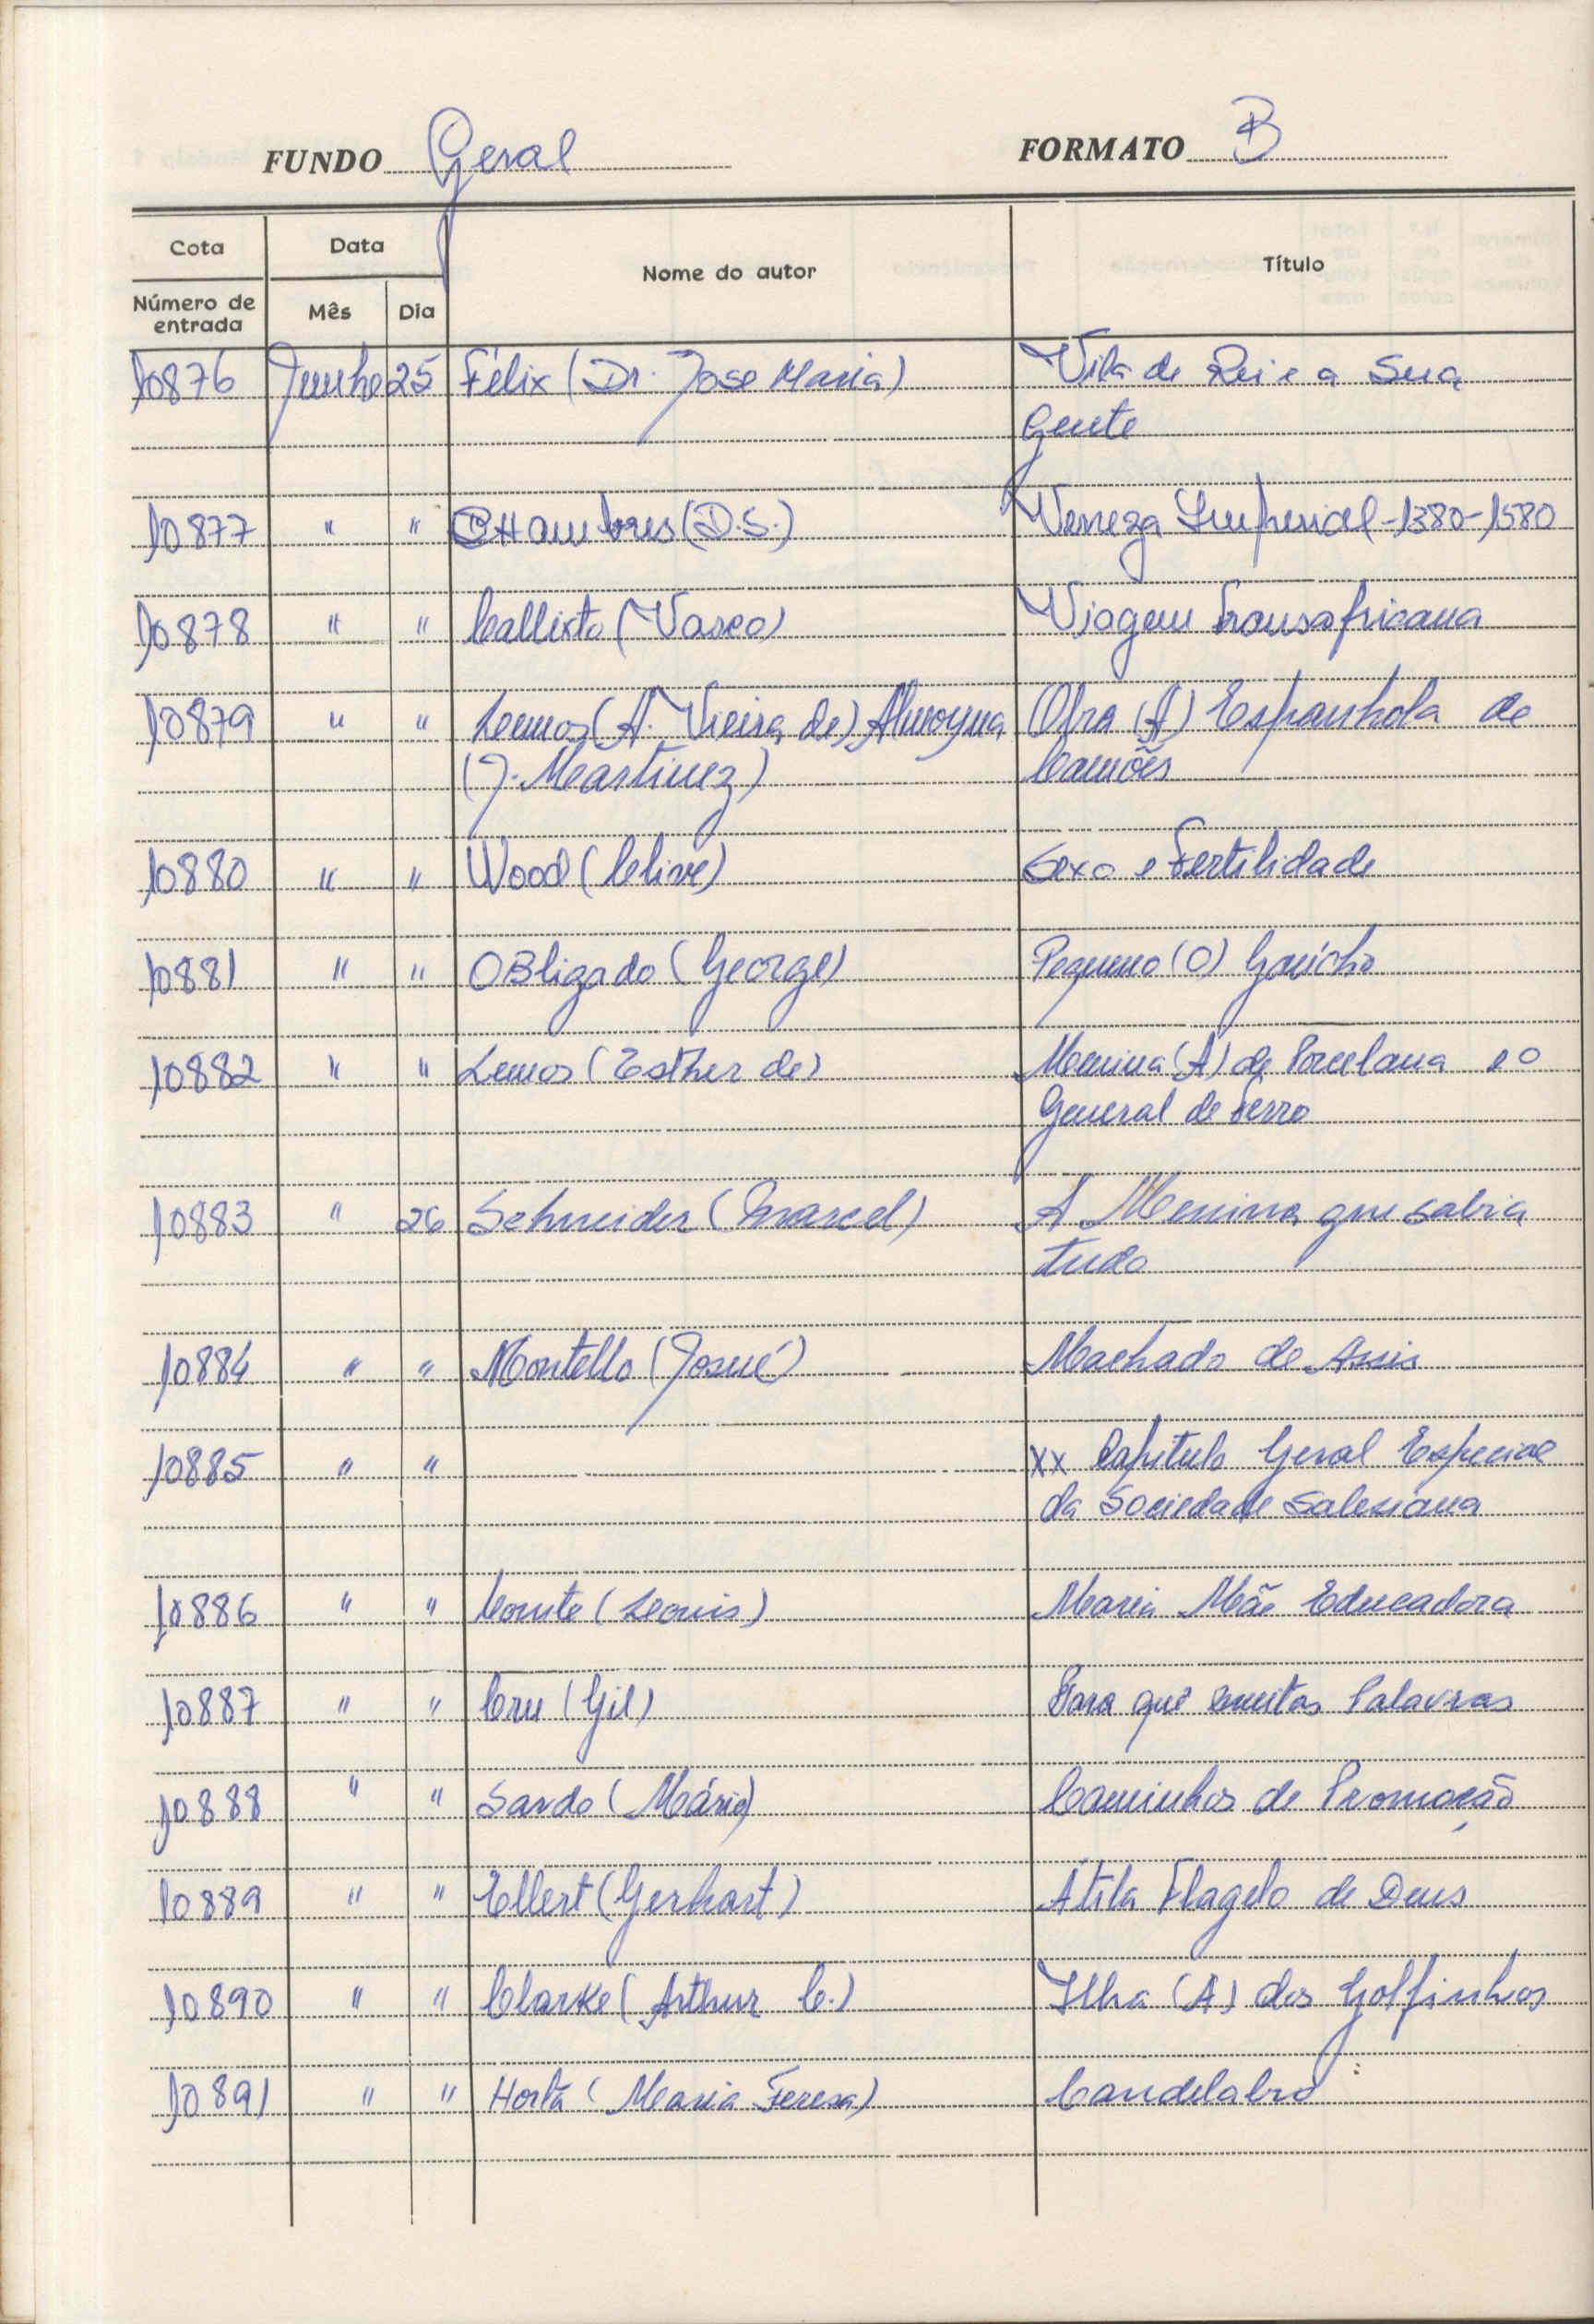 FUNDO Geral FORMATO B
Cota Data Nome do autor Título
Número de entrada Mês Dia
10876 Junho 25 Félix (Dr. Jose Maria) Vila de Rei e a Sua
Gente
10877 " " CHambres (D.S.) Veneza Imperial - 1380-1580
10878 " " Callixto (Vasco) Viagem Transafricana
10879 " " Lemos (A. Vieira de) Almoyna Obra (A) Espanhola de
(J. Martinez) Camões
10880 " " Wood (Clive) Sexo e Fertilidade
10881 " " OBligado (George) Pequeno (O) Gaúcho
10882 " " Lemos (Esther de) Menina (A) de Porcelana e o
General de Ferro
10883 " 26 Schneider (Marcel) A Menina que sabia
tudo
10884 " " Montello (Josué) Machado de Assis
10885 " " XX Capítulo Geral Especial
da Sociedade Salesiana
10886 " " Comte (Leouis) Maria Mãe Educadora
10887 " " Cru (Gil) Para quê muitas Palavras
10888 " " Sardo (Mário) Caminhos de Promoção
10889 " " Ellert (Gerhart) Átila Flagelo de Deus
10890 " " Clarke (Arthur C.) Ilha (A) dos Golfinhos
10891 " " Horta (Maria Teresa) Candelabro